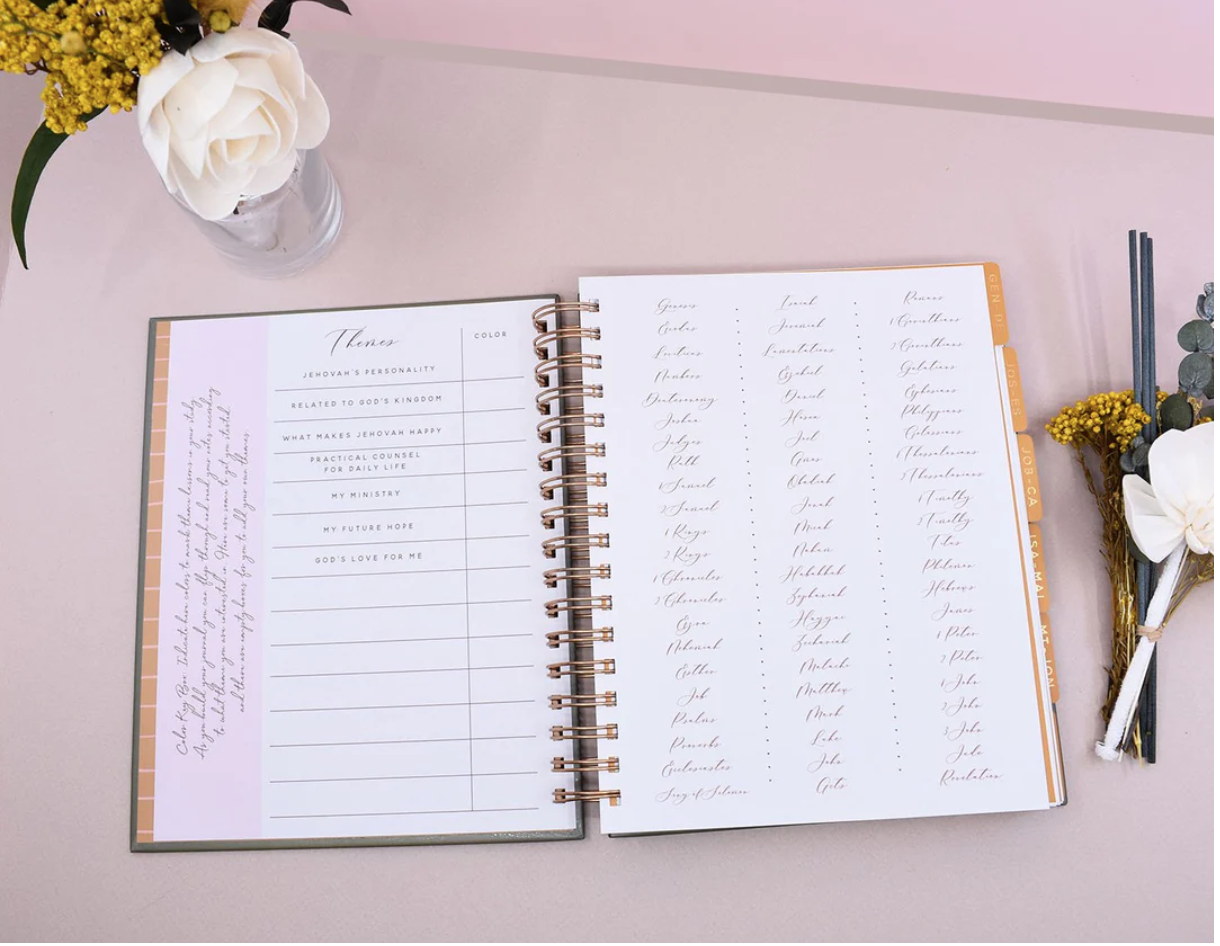 Color Key Box: Indicate here colors to mark theme lessons in your study.
As you build your journal you can flip through and read your notes according
to what theme you are interested in. Here are some to get you started,
and there are empty boxes for you to add your own themes
Themes
COLOR
JEHOVAH'S PERSONALITY
RELATED TO GOD'S KINGDOM
WHAT MAKES JEHOVAH HAPPY
PRACTICAL COUNSEL
FOR DAILY LIFE
MY MINISTRY
MY FUTURE HOPE
GOD'S LOVE FOR ME
Genesis
Exodus
Leviticus
Numbers
Deuteronomy
Joshua
Judges
Ruth
1 Samuel
2 Samuel
1 Kings
2 Kings
1 Chronicles
2 Chronicles
Ezra
Nehemiah
Esther
Job
Psalms
Proverbs
Ecclesiastes
Song of Solomon
Isaiah
Jeremiah
Lamentations
Ezekiel
Daniel
Hosea
Joel
Amos
Obadiah
Jonah
Micah
Nahum
Habakkuk
Zephaniah
Haggai
Zechariah
Malachi
Matthew
Mark
Luke
John
Acts
Romans
1 Corinthians
2 Corinthians
Galatians
Ephesians
Philippians
Colossians
1 Thessalonians
2 Thessalonians
1 Timothy
2 Timothy
Titus
Philemon
Hebrews
James
1 Peter
2 Peter
1 John
2 John
3 John
Jude
Revelation
JOS-ES
JOB-CA
ISA-MAL